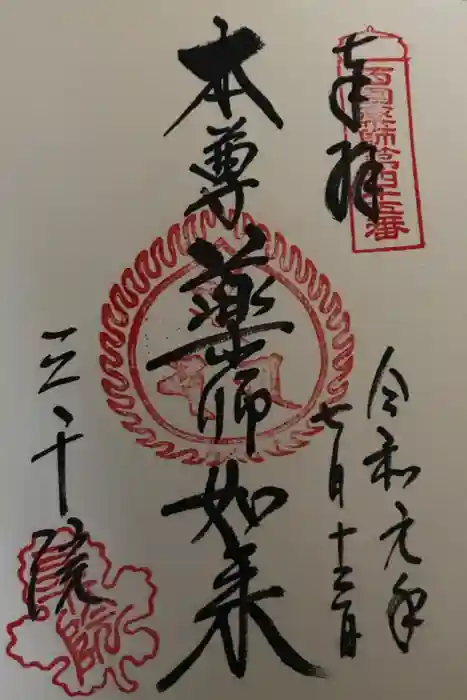 奉拝
西国薬師第四十五番
令和元年
七月十三日
本尊
薬師如来
三千院
薬師